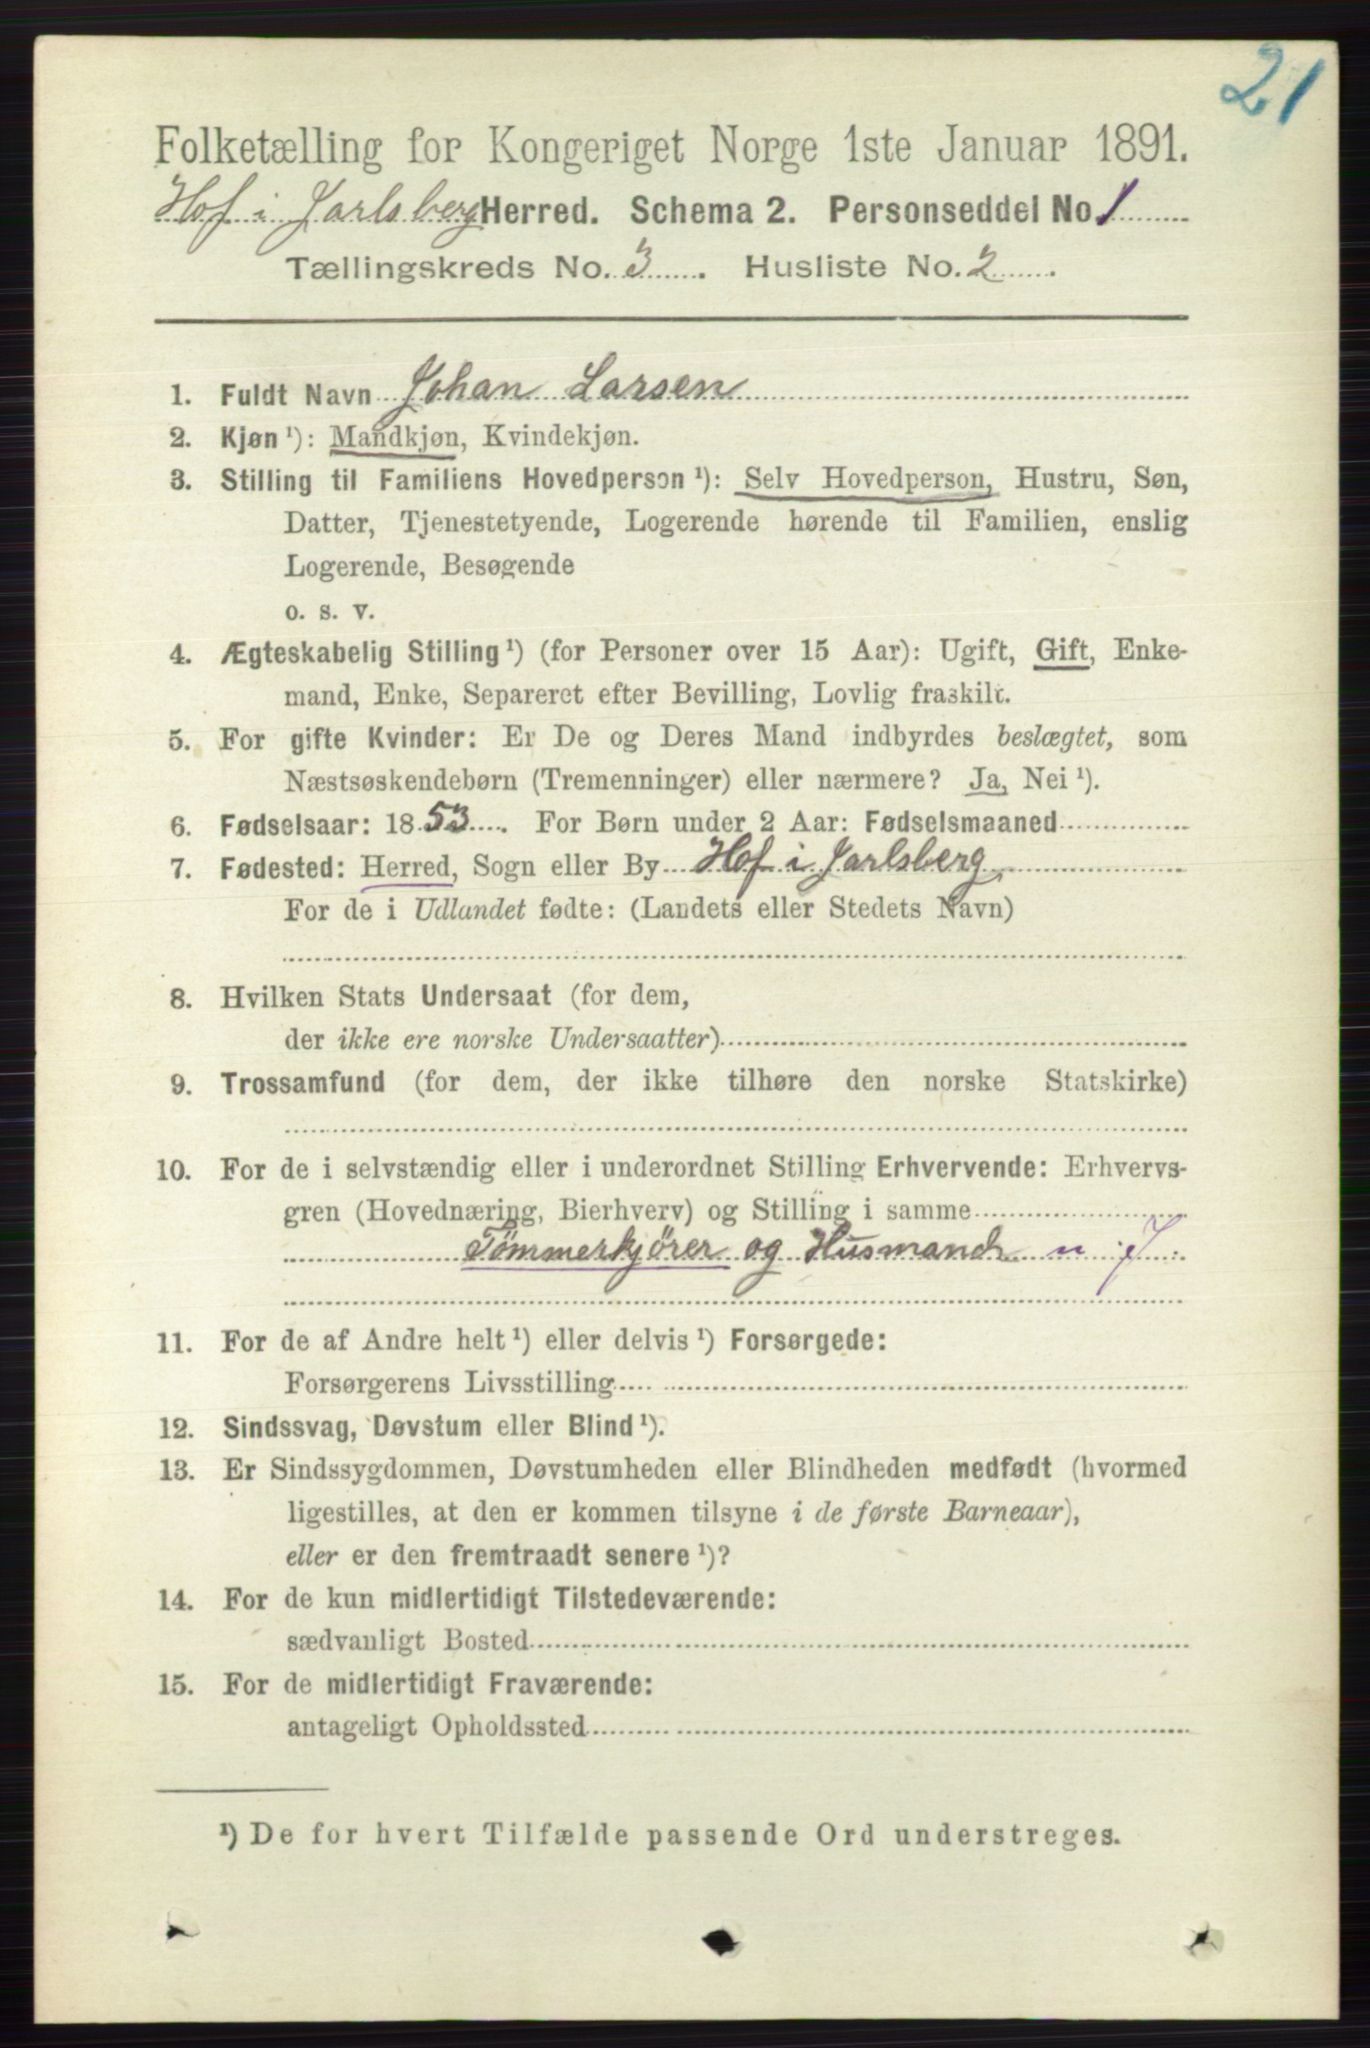 21
Folketælling for Kongeriget Norge 1ste Januar 1891.
Hof i Jarlsberg Herred. Schema 2. Personseddel No. 1
Tællingskreds No. 3. Husliste No. 2.
1. Fuldt Navn Johan Larsen
2. Kjøn¹): Mandkjøn, Kvindekjøn.
3. Stilling til Familiens Hovedperson¹): Selv Hovedperson, Hustru, Søn,
Datter, Tjenestetyende, Logerende hørende til Familien, enslig
Logerende, Besøgende
o. s. v.
4. Ægteskabelig Stilling¹) (for Personer over 15 Aar): Ugift, Gift, Enke-
mand, Enke, Separeret efter Bevilling, Lovlig fraskilt.
5. For gifte Kvinder: Er De og Deres Mand indbyrdes beslægtet, som
Næstsøskendebørn (Tremenninger) eller nærmere? Ja, Nei¹).
6. Fødselsaar: 1853. For Børn under 2 Aar: Fødselsmaaned
7. Fødested: Herred, Sogn eller By Hof i Jarlsberg
For de i Udlandet fødte: (Landets eller Stedets Navn)
8. Hvilken Stats Undersaat (for dem,
der ikke ere norske Undersaatter)
9. Trossamfund (for dem, der ikke tilhøre den norske Statskirke)
10. For de i selvstændig eller i underordnet Stilling Erhvervende: Erhvervs-
gren (Hovednæring, Bierhverv) og Stilling i samme
Tömmerkjörer og Husmand u. J.
11. For de af Andre helt¹) eller delvis¹) Forsørgede:
Forsørgerens Livsstilling
12. Sindssvag, Døvstum eller Blind¹).
13. Er Sindssygdommen, Døvstumheden eller Blindheden medfødt (hvormed
ligestilles, at den er kommen tilsyne i de første Barneaar),
eller er den fremtraadt senere¹)?
14. For de kun midlertidigt Tilstedeværende:
sædvanligt Bosted
15. For de midlertidigt Fraværende:
antageligt Opholdssted
¹) De for hvert Tilfælde passende Ord understreges.